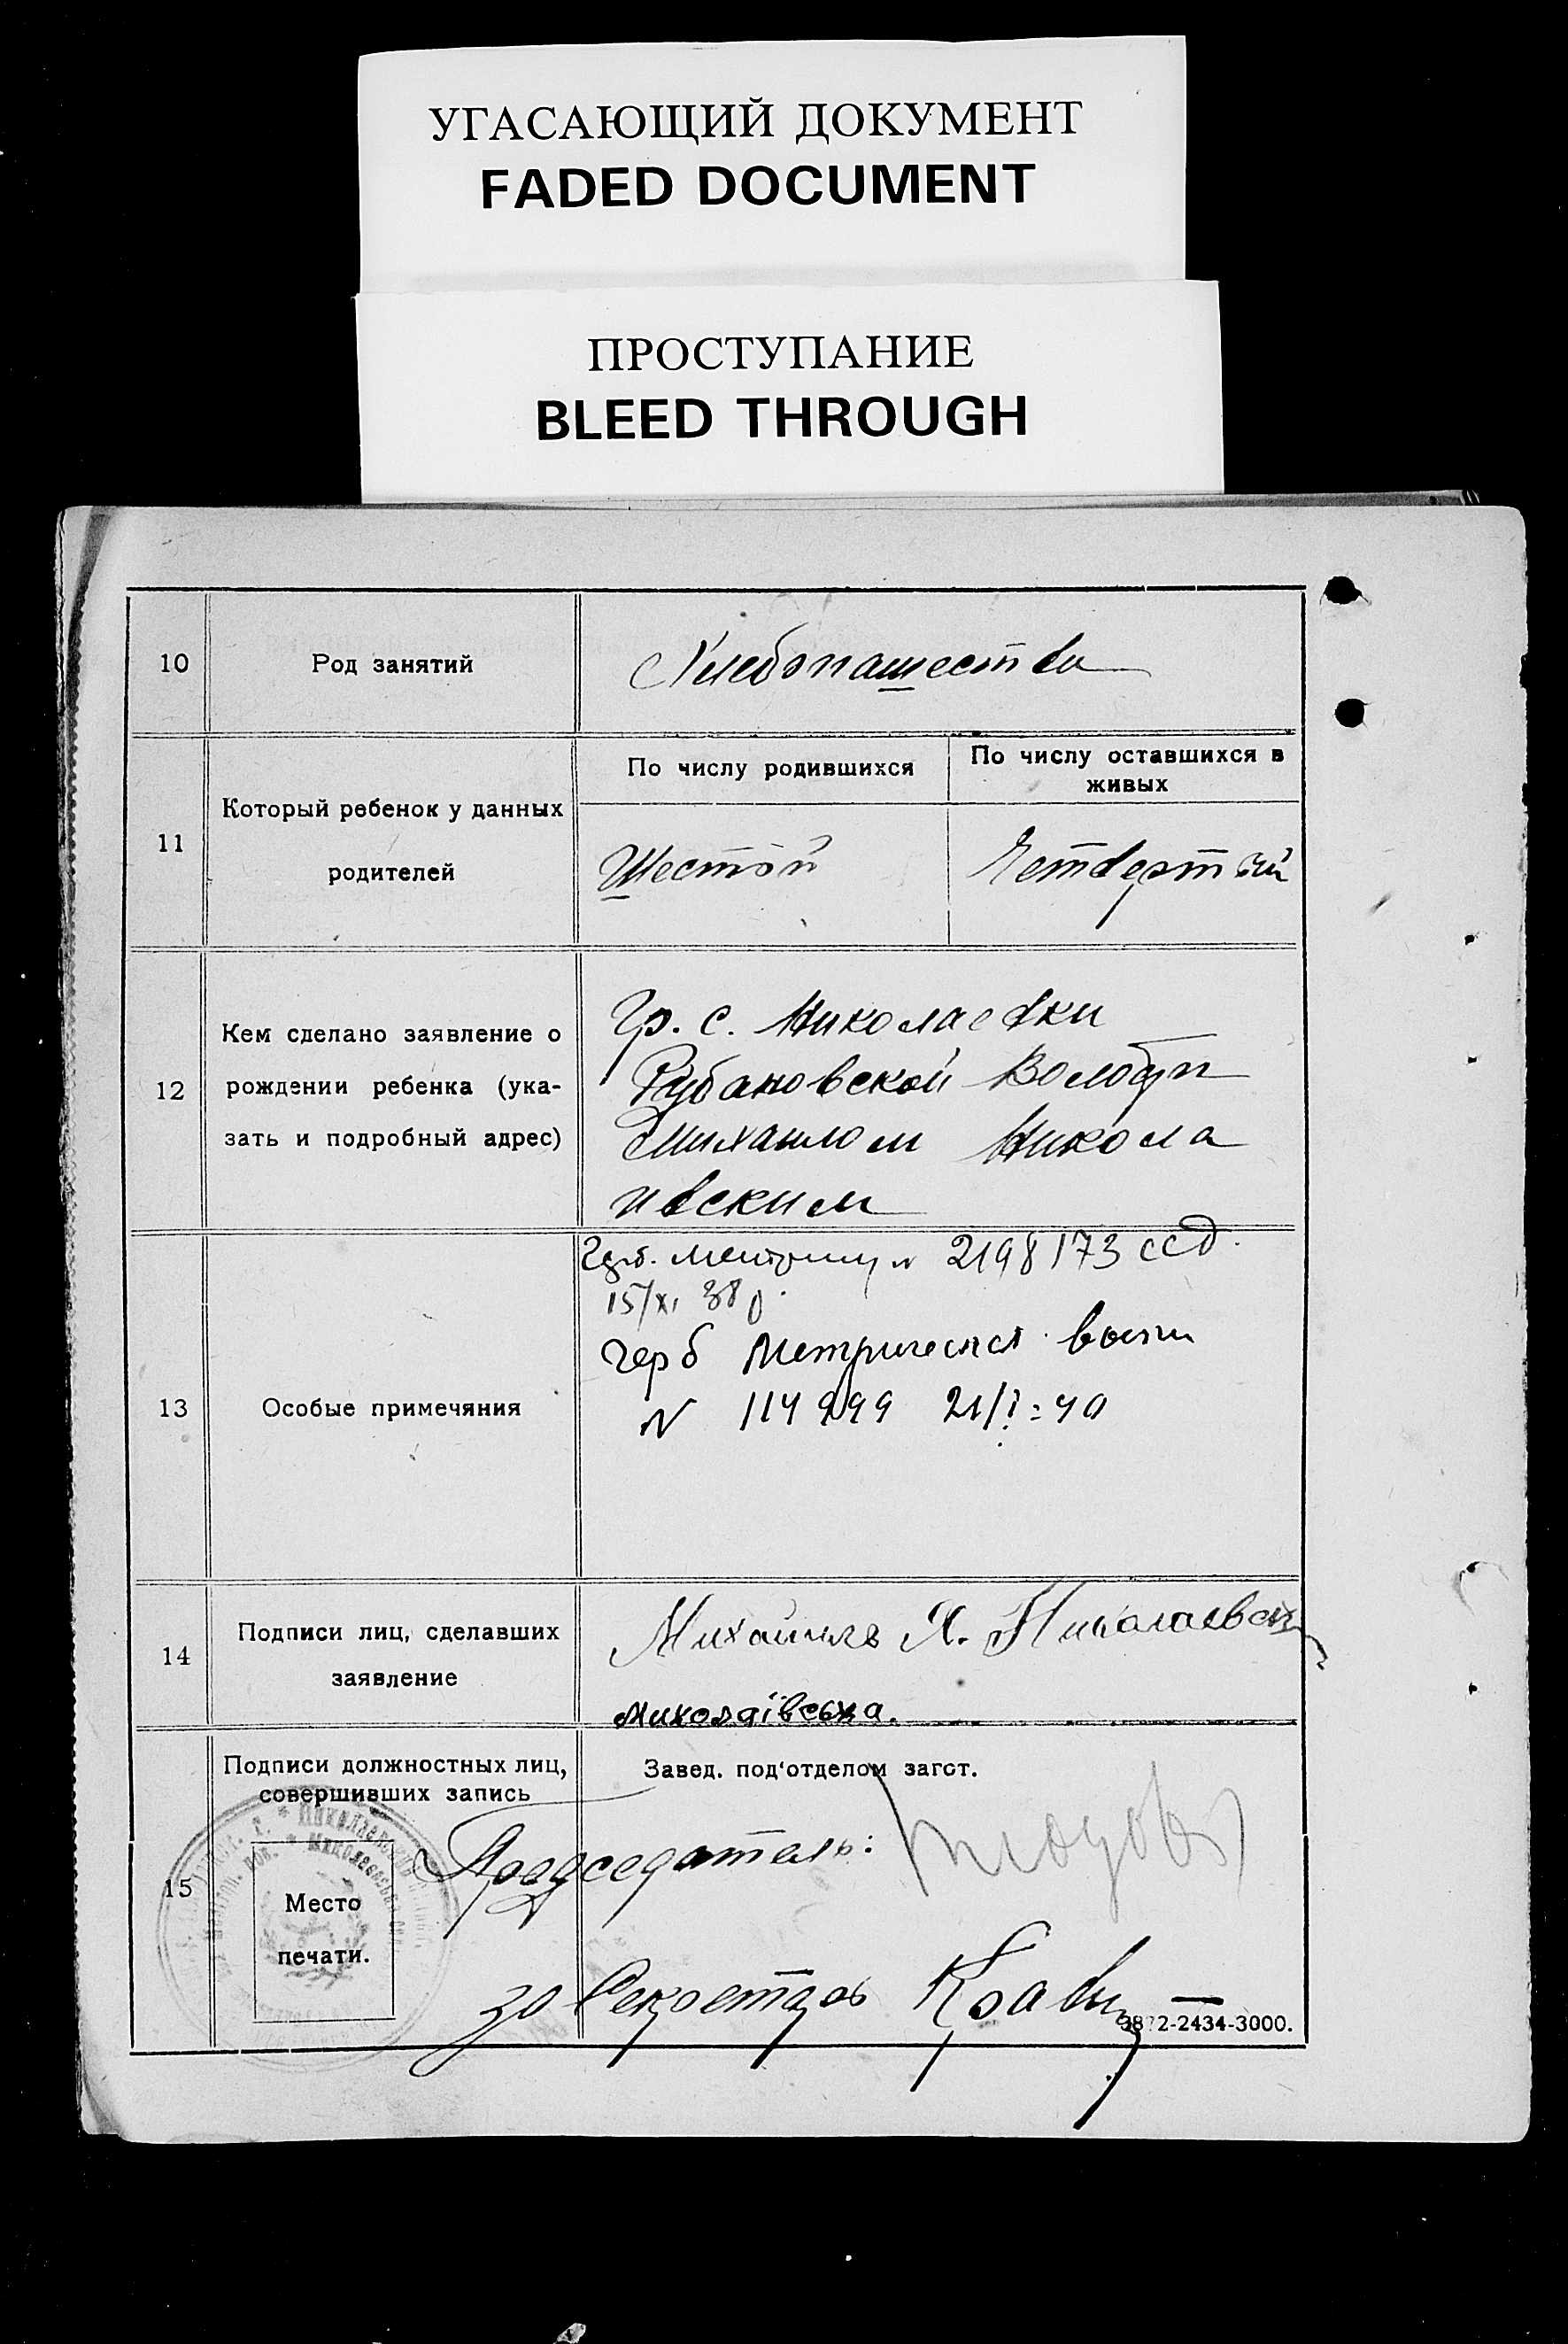 УГАСАЮЩИЙ ДОКУМЕНТ
FADED DOCUMENT
ПРОСТУПАНИЕ
BLEED THROUGH
10
Род занятий
Хлебопашество
11
Который ребенок у данных
родителей
По числу родившихся
По числу оставшихся в
живых
Шестой
Четвертый
12
Кем сделано заявление о
рождении ребенка (ука-
зать и подробный адрес)
Гр. с. Николаевки
Рубановской Волости
Михаилом Никола
ивским
13
Особые примечяния
2198173
15/XI 38 р.
Герб Метрическая
N 114999 21/ 40
14
Подписи лиц, сделавших
заявление
Михаилъ Я. Николаевск
Миколаївська.
15
Подписи должностных лиц,
совершивших запись
Место
печати.
Завед. под'отделом загст.
Председатель:
за Секретарь Кравц
2-2434-3000.